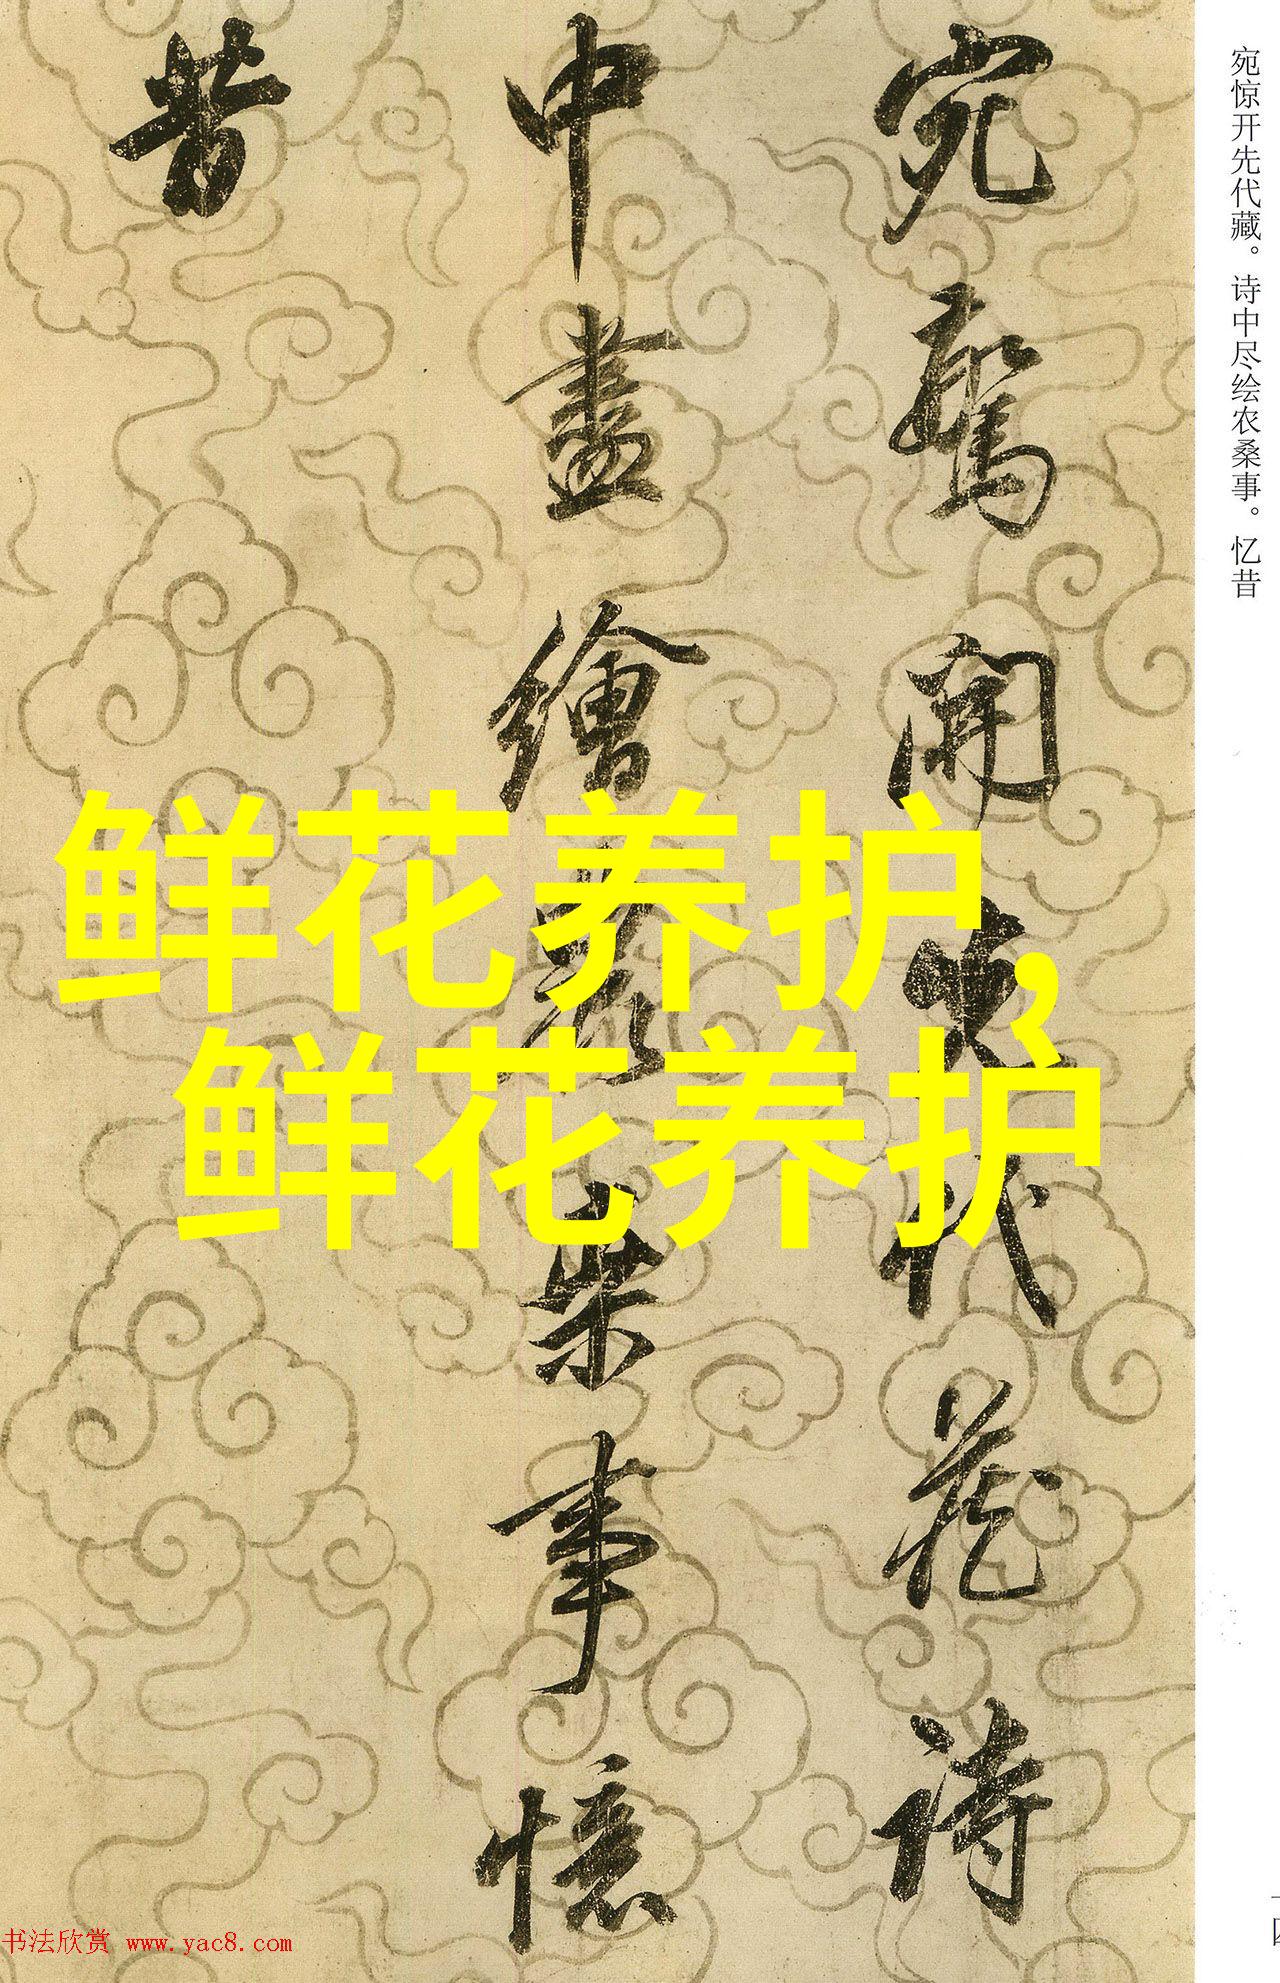 宛驚開先代藏詩
中盡繪農桒事憶
昔
宛惊开先代藏。诗中尽绘农桑事。忆昔
鲜花养护,
鲜花养护
书法欣赏 www.yac8.com